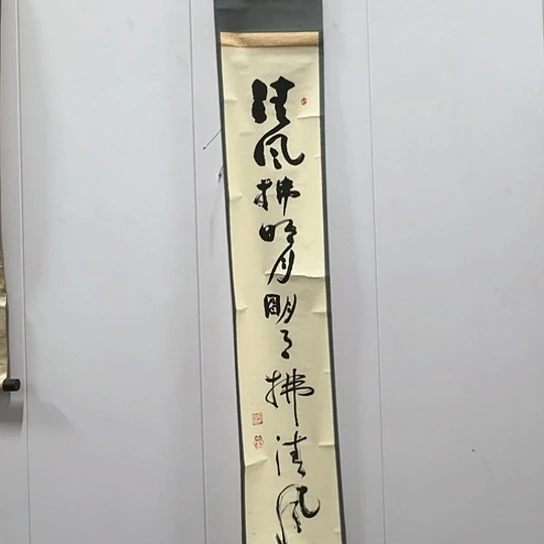 清風拂明月明月拂清風